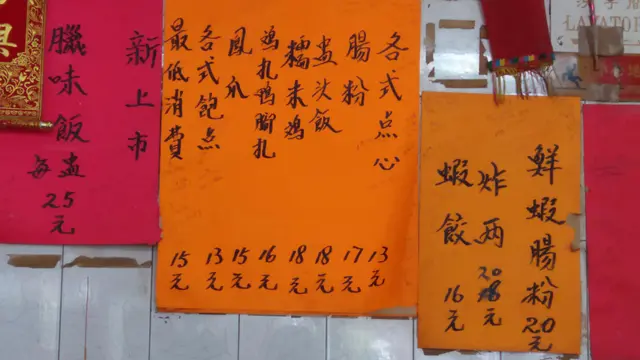 LAVATOR
鮮蝦腸粉20元
炸两20元
蝦餃16元
各式点心13元
腸粉17元
盅头飯18元
糯米鸡18元
鸡扎鸭脚扎16元
鳳爪15元
各式飽点13元
最低消費15元
新上市
臘味飯
每盅
25
元